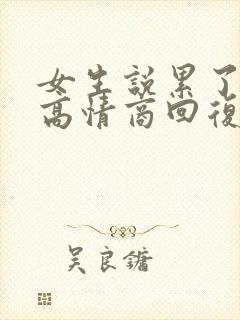 女生說累了
高情商回復
吴良鏞